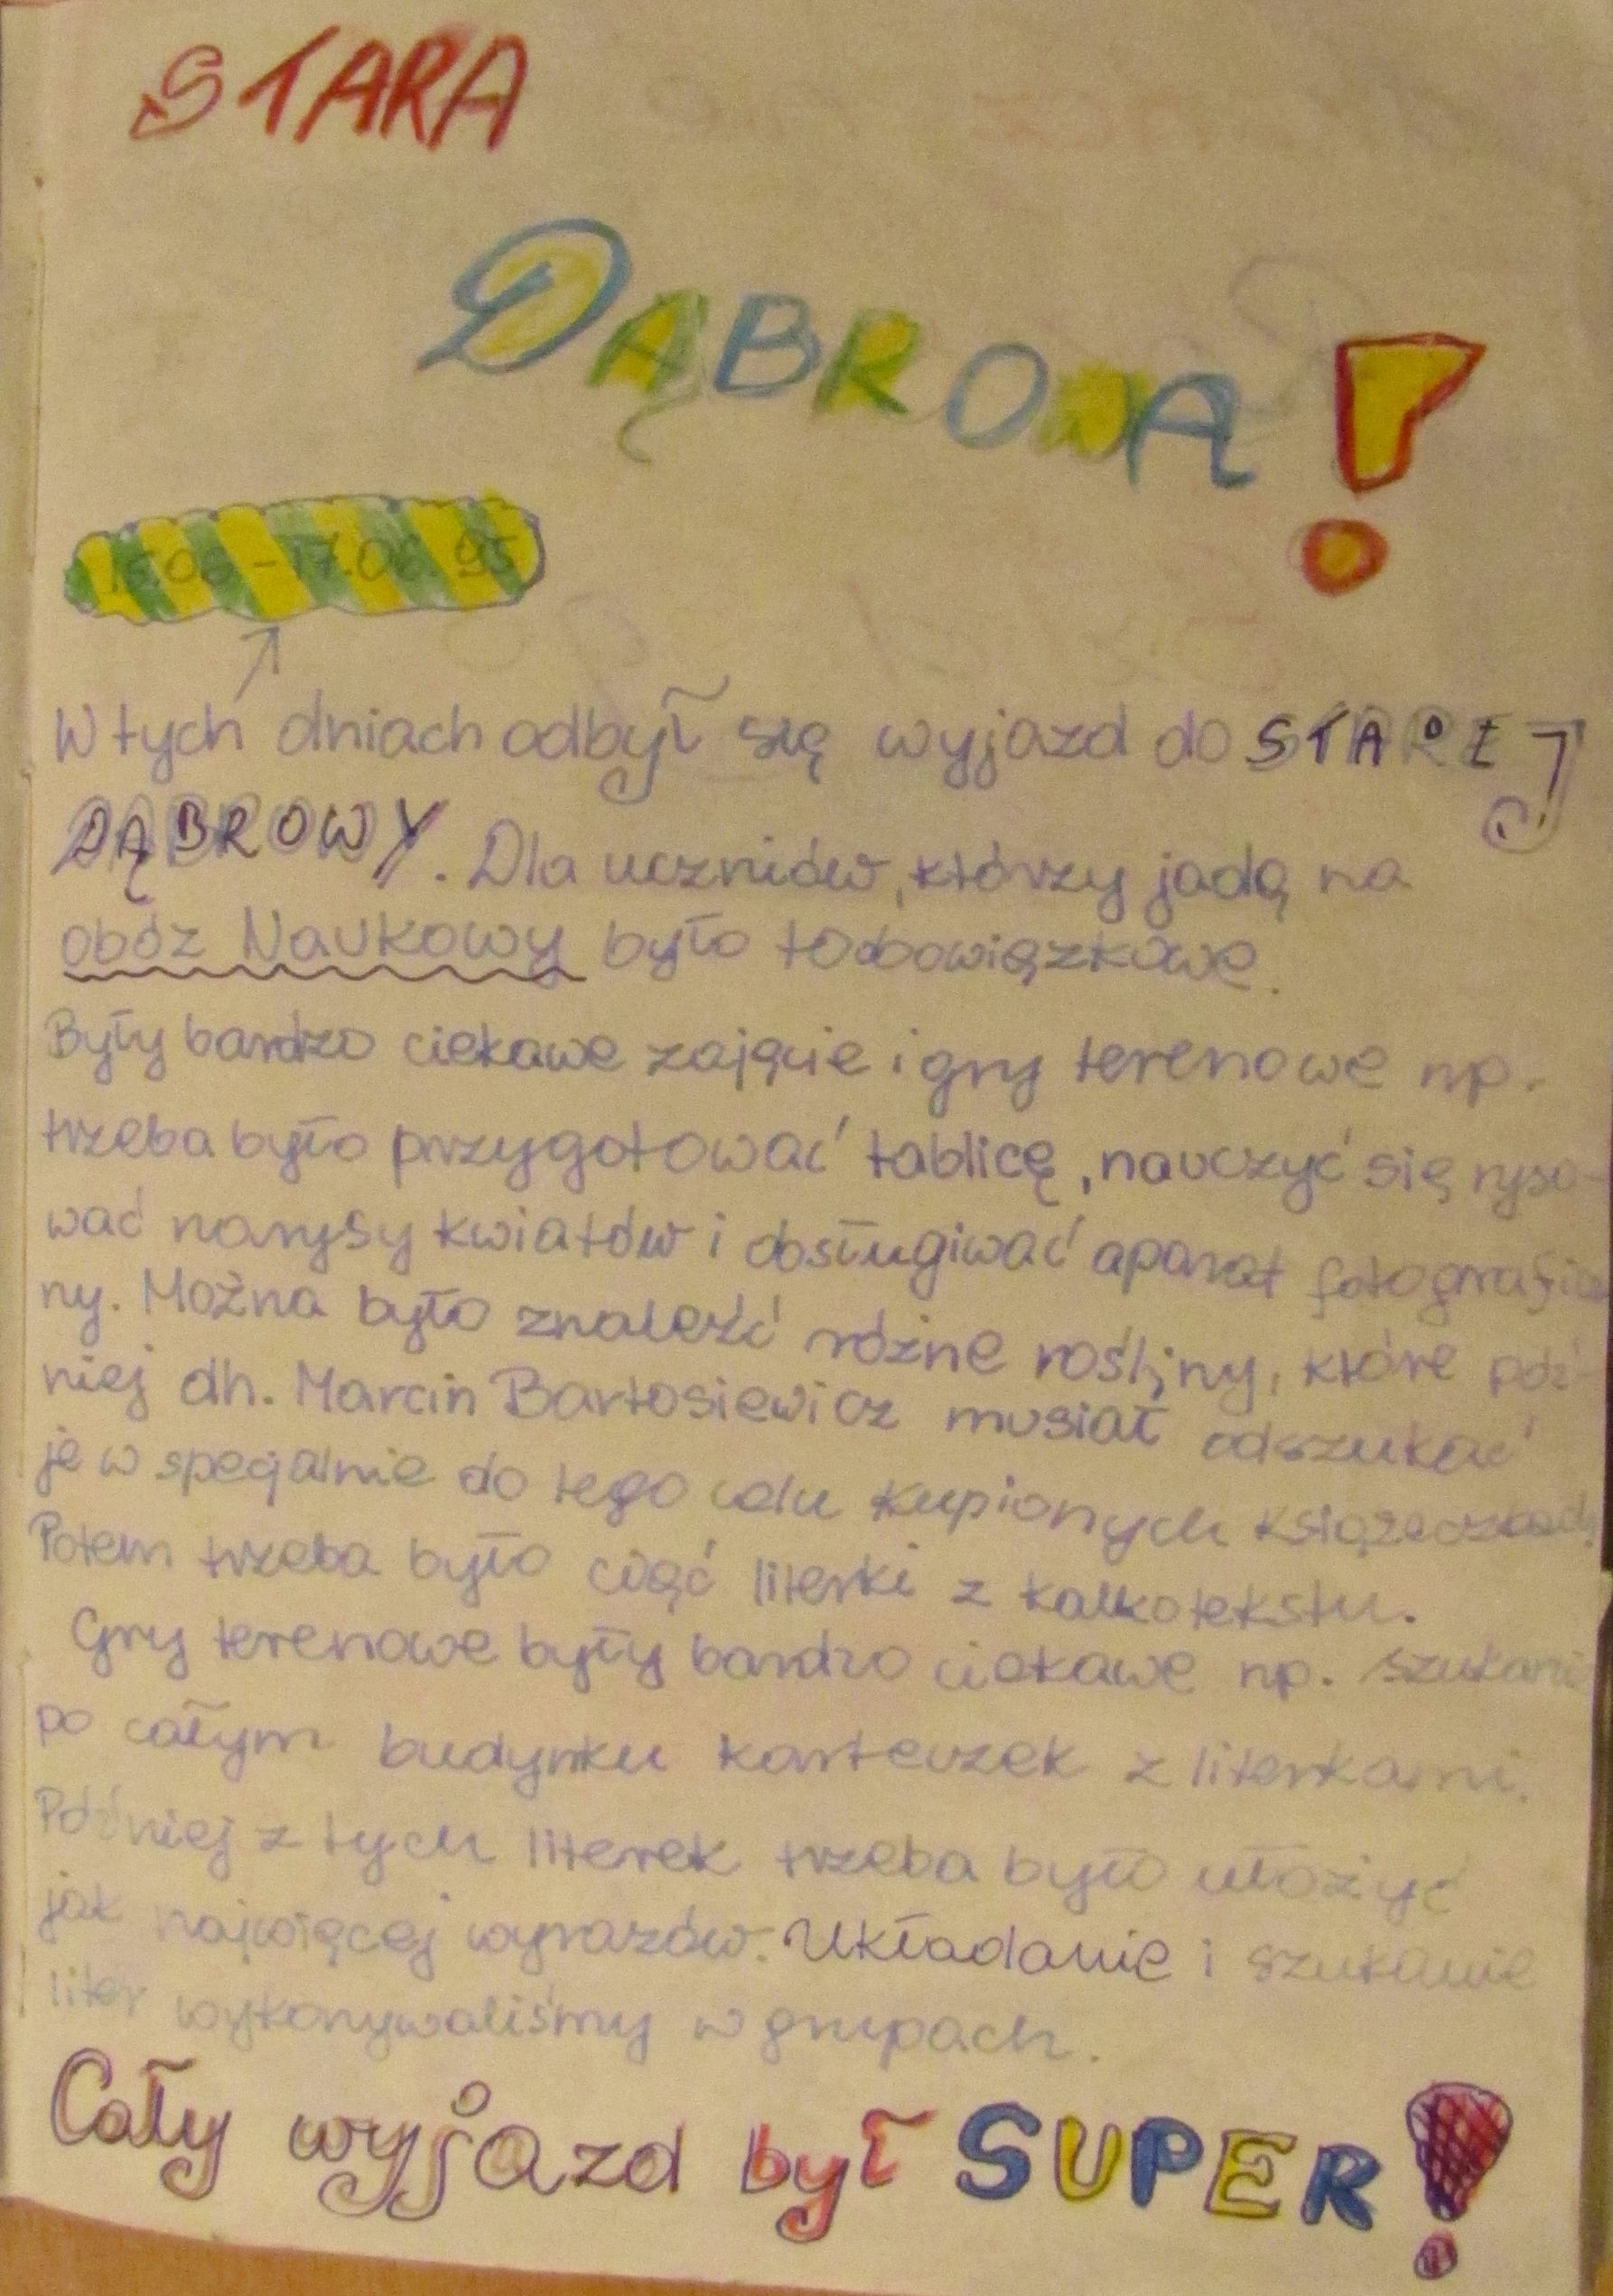 STARA
DĄBROWA!
15.06-17.06.95
W tych dniach odbył się wyjazd do STAREJ
DĄBROWY. Dla uczniów, którzy jadą na
obóz Naukowy było to obowiązkowe.
Były bardzo ciekawe zajęcie i gry terenowe np.
trzeba było przygotować tablicę, nauczyć się ryso-
wać narysy kwiatów i obsługiwać aparat fotograficz
ny. Można było znaleźć różne rośliny, które póź-
niej dh. Marcin Bartosiewicz musiał odszukać
je w specjalnie do tego celu kupionych książeczkach.
Potem trzeba było ciąć literki z kalkotekstu.
Gry terenowe były bardzo ciekawe np. szukanie
po całym budynku karteczek z literkami.
Później z tych literek trzeba było ułożyć
jak najwięcej wyrazów. Układanie i szukanie
liter wykonywaliśmy w grupach.
Cały wyjazd był SUPER!